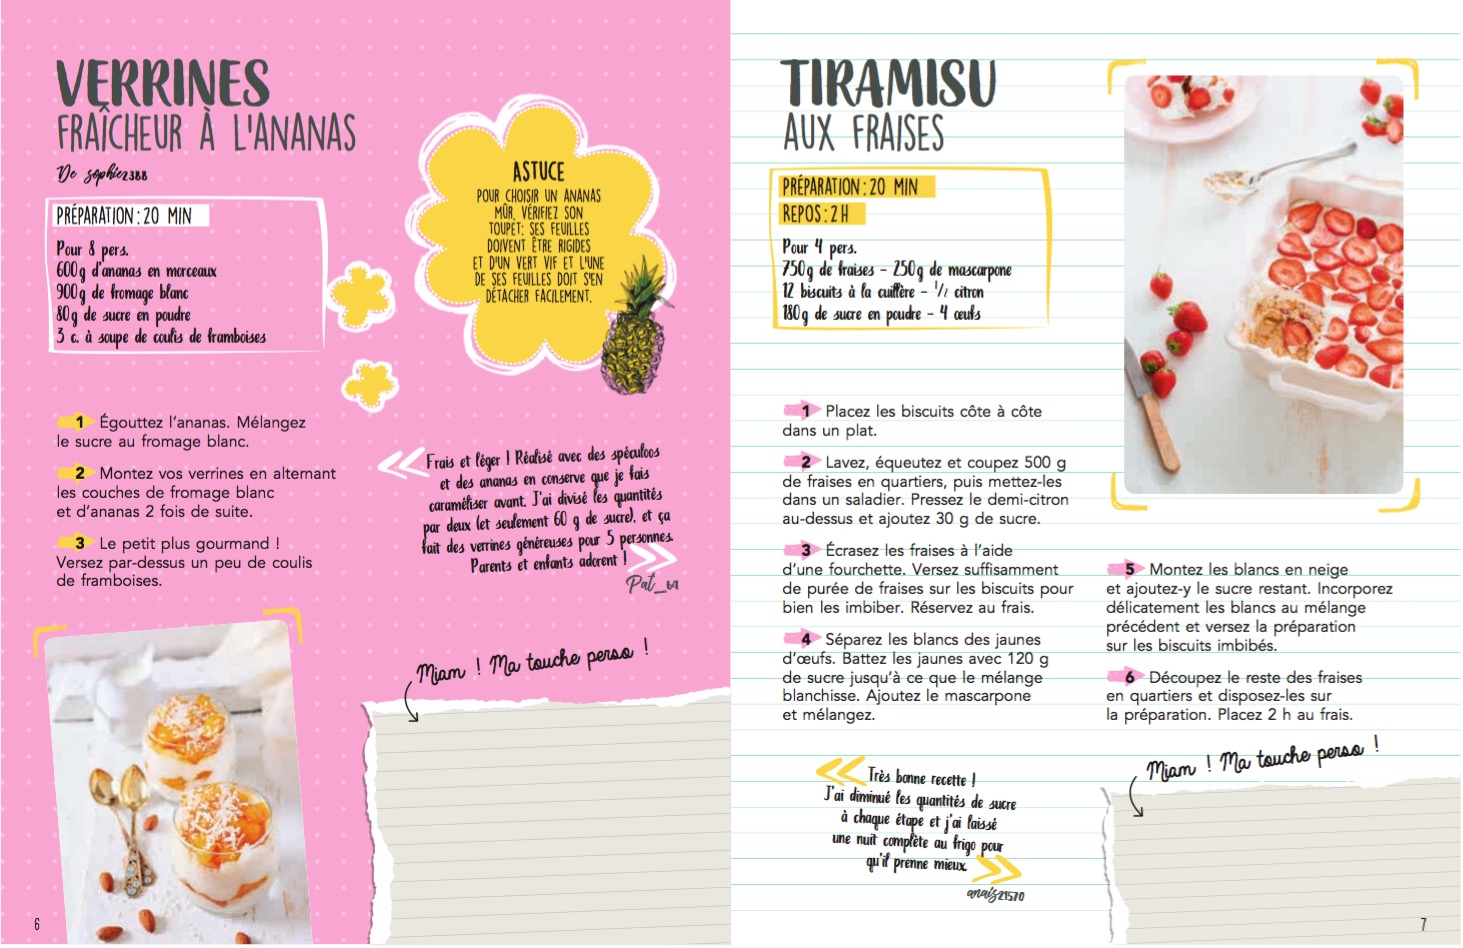 VERRINES
FRAÎCHEUR À L'ANANAS
De sophie2388
PRÉPARATION : 20 MIN
Pour 8 pers.
600 g d'ananas en morceaux
900 g de fromage blanc
80 g de sucre en poudre
3 c. à soupe de coulis de framboises
ASTUCE
POUR CHOISIR UN ANANAS
MÛR, VÉRIFIEZ SON
TOUPET: SES FEUILLES
DOIVENT ÊTRE RIGIDES
ET D'UN VERT VIF ET L'UNE
DE SES FEUILLES DOIT S'EN
DÉTACHER FACILEMENT.
1 Égouttez l'ananas. Mélangez
le sucre au fromage blanc.
2 Montez vos verrines en alternant
les couches de fromage blanc
et d'ananas 2 fois de suite.
3 Le petit plus gourmand !
Versez par-dessus un peu de coulis
de framboises.
« Frais et léger ! Réalisé avec des spéculoos
et des ananas en conserve que je fais
caraméliser avant. J'ai divisé les quantités
par deux (et seulement 60 g de sucre), et ça
fait des verrines généreuses pour 5 personnes.
Parents et enfants adorent ! »
Pat_64
Miam ! Ma touche perso !
6
TIRAMISU
AUX FRAISES
PRÉPARATION : 20 MIN
REPOS : 2 H
Pour 4 pers.
750 g de fraises – 250 g de mascarpone
12 biscuits à la cuillère – 1/2 citron
180 g de sucre en poudre – 4 œufs
1 Placez les biscuits côte à côte
dans un plat.
2 Lavez, équeutez et coupez 500 g
de fraises en quartiers, puis mettez-les
dans un saladier. Pressez le demi-citron
au-dessus et ajoutez 30 g de sucre.
3 Écrasez les fraises à l'aide
d'une fourchette. Versez suffisamment
de purée de fraises sur les biscuits pour
bien les imbiber. Réservez au frais.
4 Séparez les blancs des jaunes
d'œufs. Battez les jaunes avec 120 g
de sucre jusqu'à ce que le mélange
blanchisse. Ajoutez le mascarpone
et mélangez.
5 Montez les blancs en neige
et ajoutez-y le sucre restant. Incorporez
délicatement les blancs au mélange
précédent et versez la préparation
sur les biscuits imbibés.
6 Découpez le reste des fraises
en quartiers et disposez-les sur
la préparation. Placez 2 h au frais.
« Très bonne recette !
J'ai diminué les quantités de sucre
à chaque étape et j'ai laissé
une nuit complète au frigo pour
qu'il prenne mieux. »
anais21570
Miam ! Ma touche perso !
7